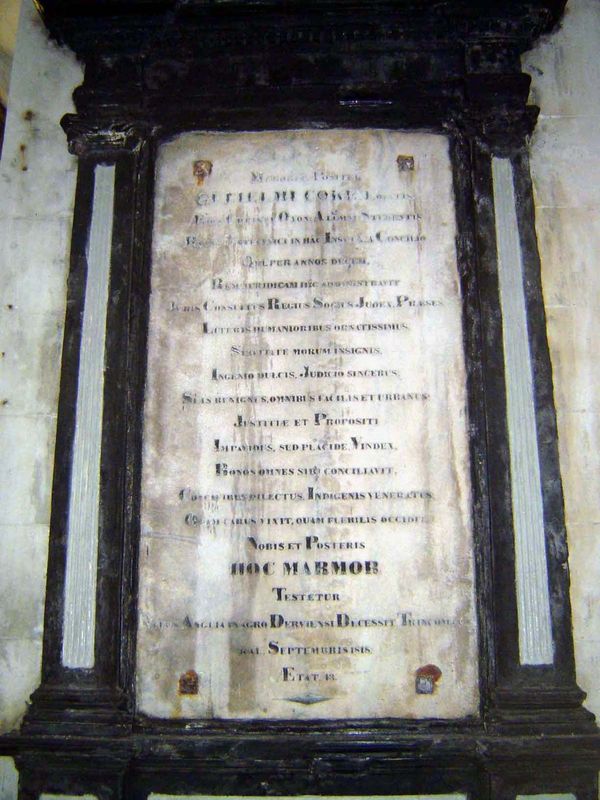 GULIELMI COKE, EQUITIS
OXON, ALUMNI STUDENTIS
IN HAC INSULA, A CONCILIO
QUI, PER ANNOS DECEM,
REM JURIDICAM HIC ADMINISTRAVIT
JURIS CONSULTUS REGIUS SOCIUS JUDEX, PRÆSES,
LITERIS HUMANIORIBUS ORNATISSIMUS,
MORUM INSIGNIS,
INGENIO DULCIS, JUDICIO SINCERUS,
SUIS BENIGNUS, OMNIBUS FACILIS ET URBANUS:
JUSTICIÆ ET PROPOSITI
IMPAVIDUS, SUD PLACIDE, VINDEX,
BONOS OMNES SIBI CONCILIAVIT,
DILECTUS, INDIGENIS VENERATUS,
QUAM CARUS VIXIT, QUAM FLEBILIS OCCIDIT
NOBIS ET POSTERIS
HOC MARMOR
TESTETUR
ANGLIA IN AGRO DERVIENSI DECESSIT
KAL. SEPTEMBRIS
ETAT. 43.